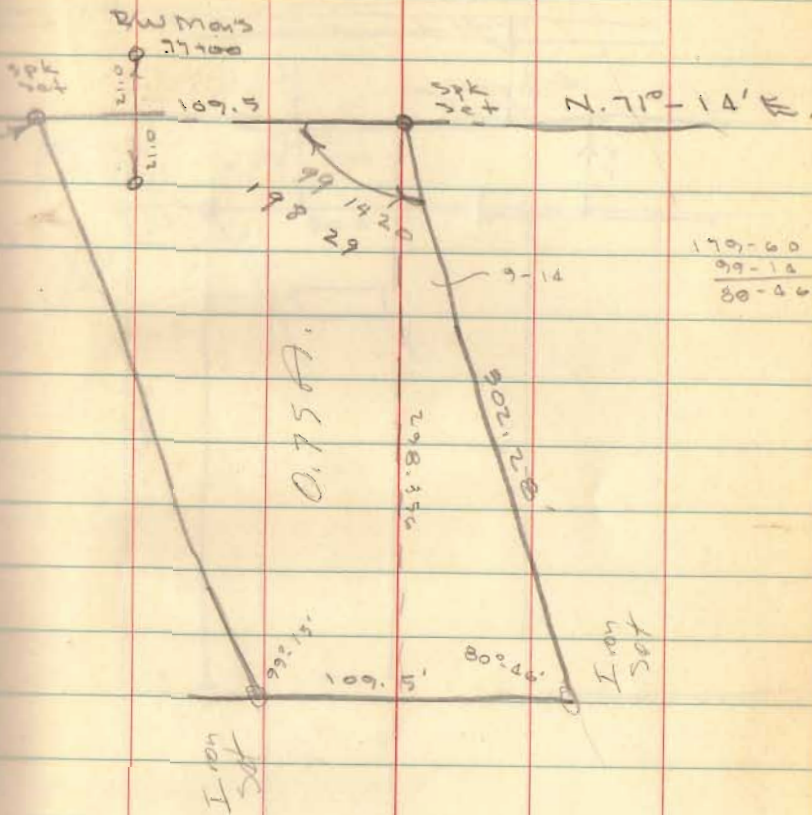 R/W Mon's
77+00
spk
set
21.0
21.0
109.5
spk
set
N. 71° - 14' E.
99 14 20
198 29
179-60
99-14
80-46
9-14
0.75 A.
298.8356
302.28'
99°-15'
109.5'
80°-46'
Iron
Set
Iron
Set